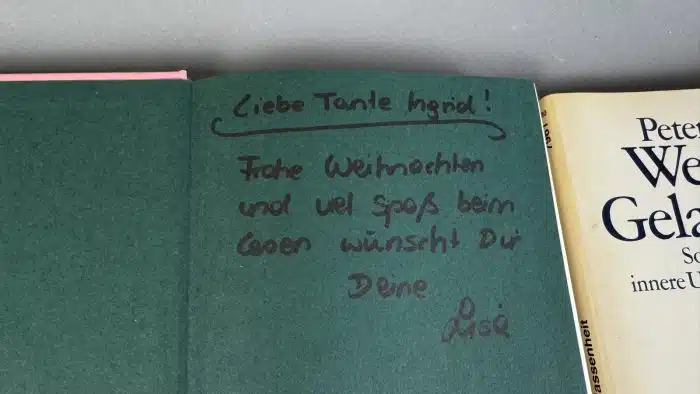 Liebe Tante Ingrid!
Frohe Weihnachten
und viel Spaß beim
Lesen wünscht Dir
Deine
Lisa
Peter
We
Gela
So
innere U
assenheit